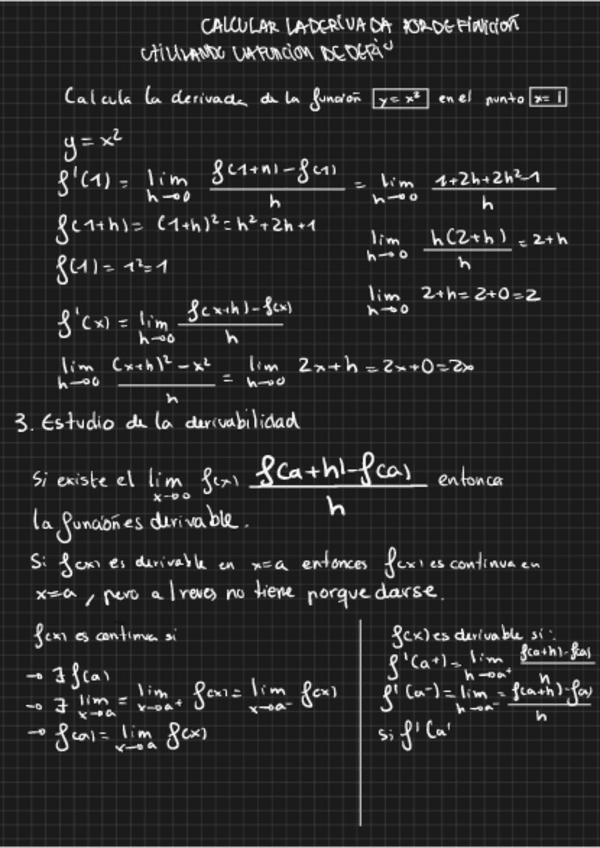 CALCULAR LA DERIVADA POR DEFINICIÓN
UTILIZANDO LA FUNCION DE
Calcula la derivada de la función y = x² en el punto x = 1
y = x²
f'(1) = lim h→0 f(1+h) - f(1) / h = lim h→0 1+2h+2h²-1 / h
f(1+h) = (1+h)² = h²+2h+1
lim h→0 h(2+h) / h = 2+h
f(1) = 1² = 1
lim h→0 2+h = 2+0 = 2
f'(x) = lim h→0 f(x+h) - f(x) / h
lim h→0 (x+h)² - x² / h = lim h→0 2x+h = 2x+0 = 2x
3. Estudio de la derivabilidad
Si existe el lim x→0 f(x) f(a+h) - f(a) / h entonces
la función es derivable.
Si f(x) es derivable en x=a entonces f(x) es continua en
x=a, pero al reves no tiene porque darse.
f(x) es continua si
→ ∃ f(a)
→ ∃ lim x→a = lim x→a+ f(x) = lim x→a- f(x)
→ f(a) = lim x→a f(x)
f(x) es derivable si:
f'(a+) = lim h→a+ f(a+h) - f(a) / h
f'(a-) = lim h→a- = f(a+h) - f(a) / h
si f'(a'